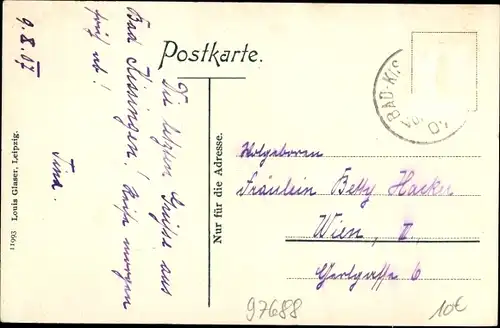 9.8.07
Postkarte.
Die letzten Grüße aus
Bad Kissingen! Reise morgen
früh ab!
Tina.
11093 Louis Glaser, Leipzig.
Nur für die Adresse.
BAD-KIS
Fräulein Betty Hacker
Wien, II
6
97688
10€